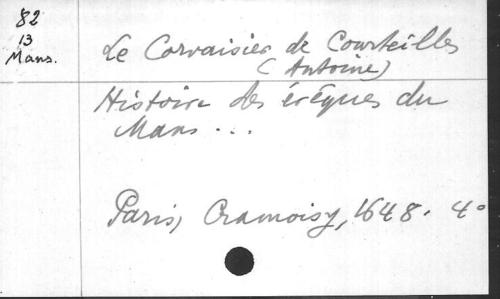 82
13
Mans.
Le Corvaisier de Courteilles
(Antoine)
Histoire des évêques du
Mans ...
Paris, Cramoisy, 1648. 4°